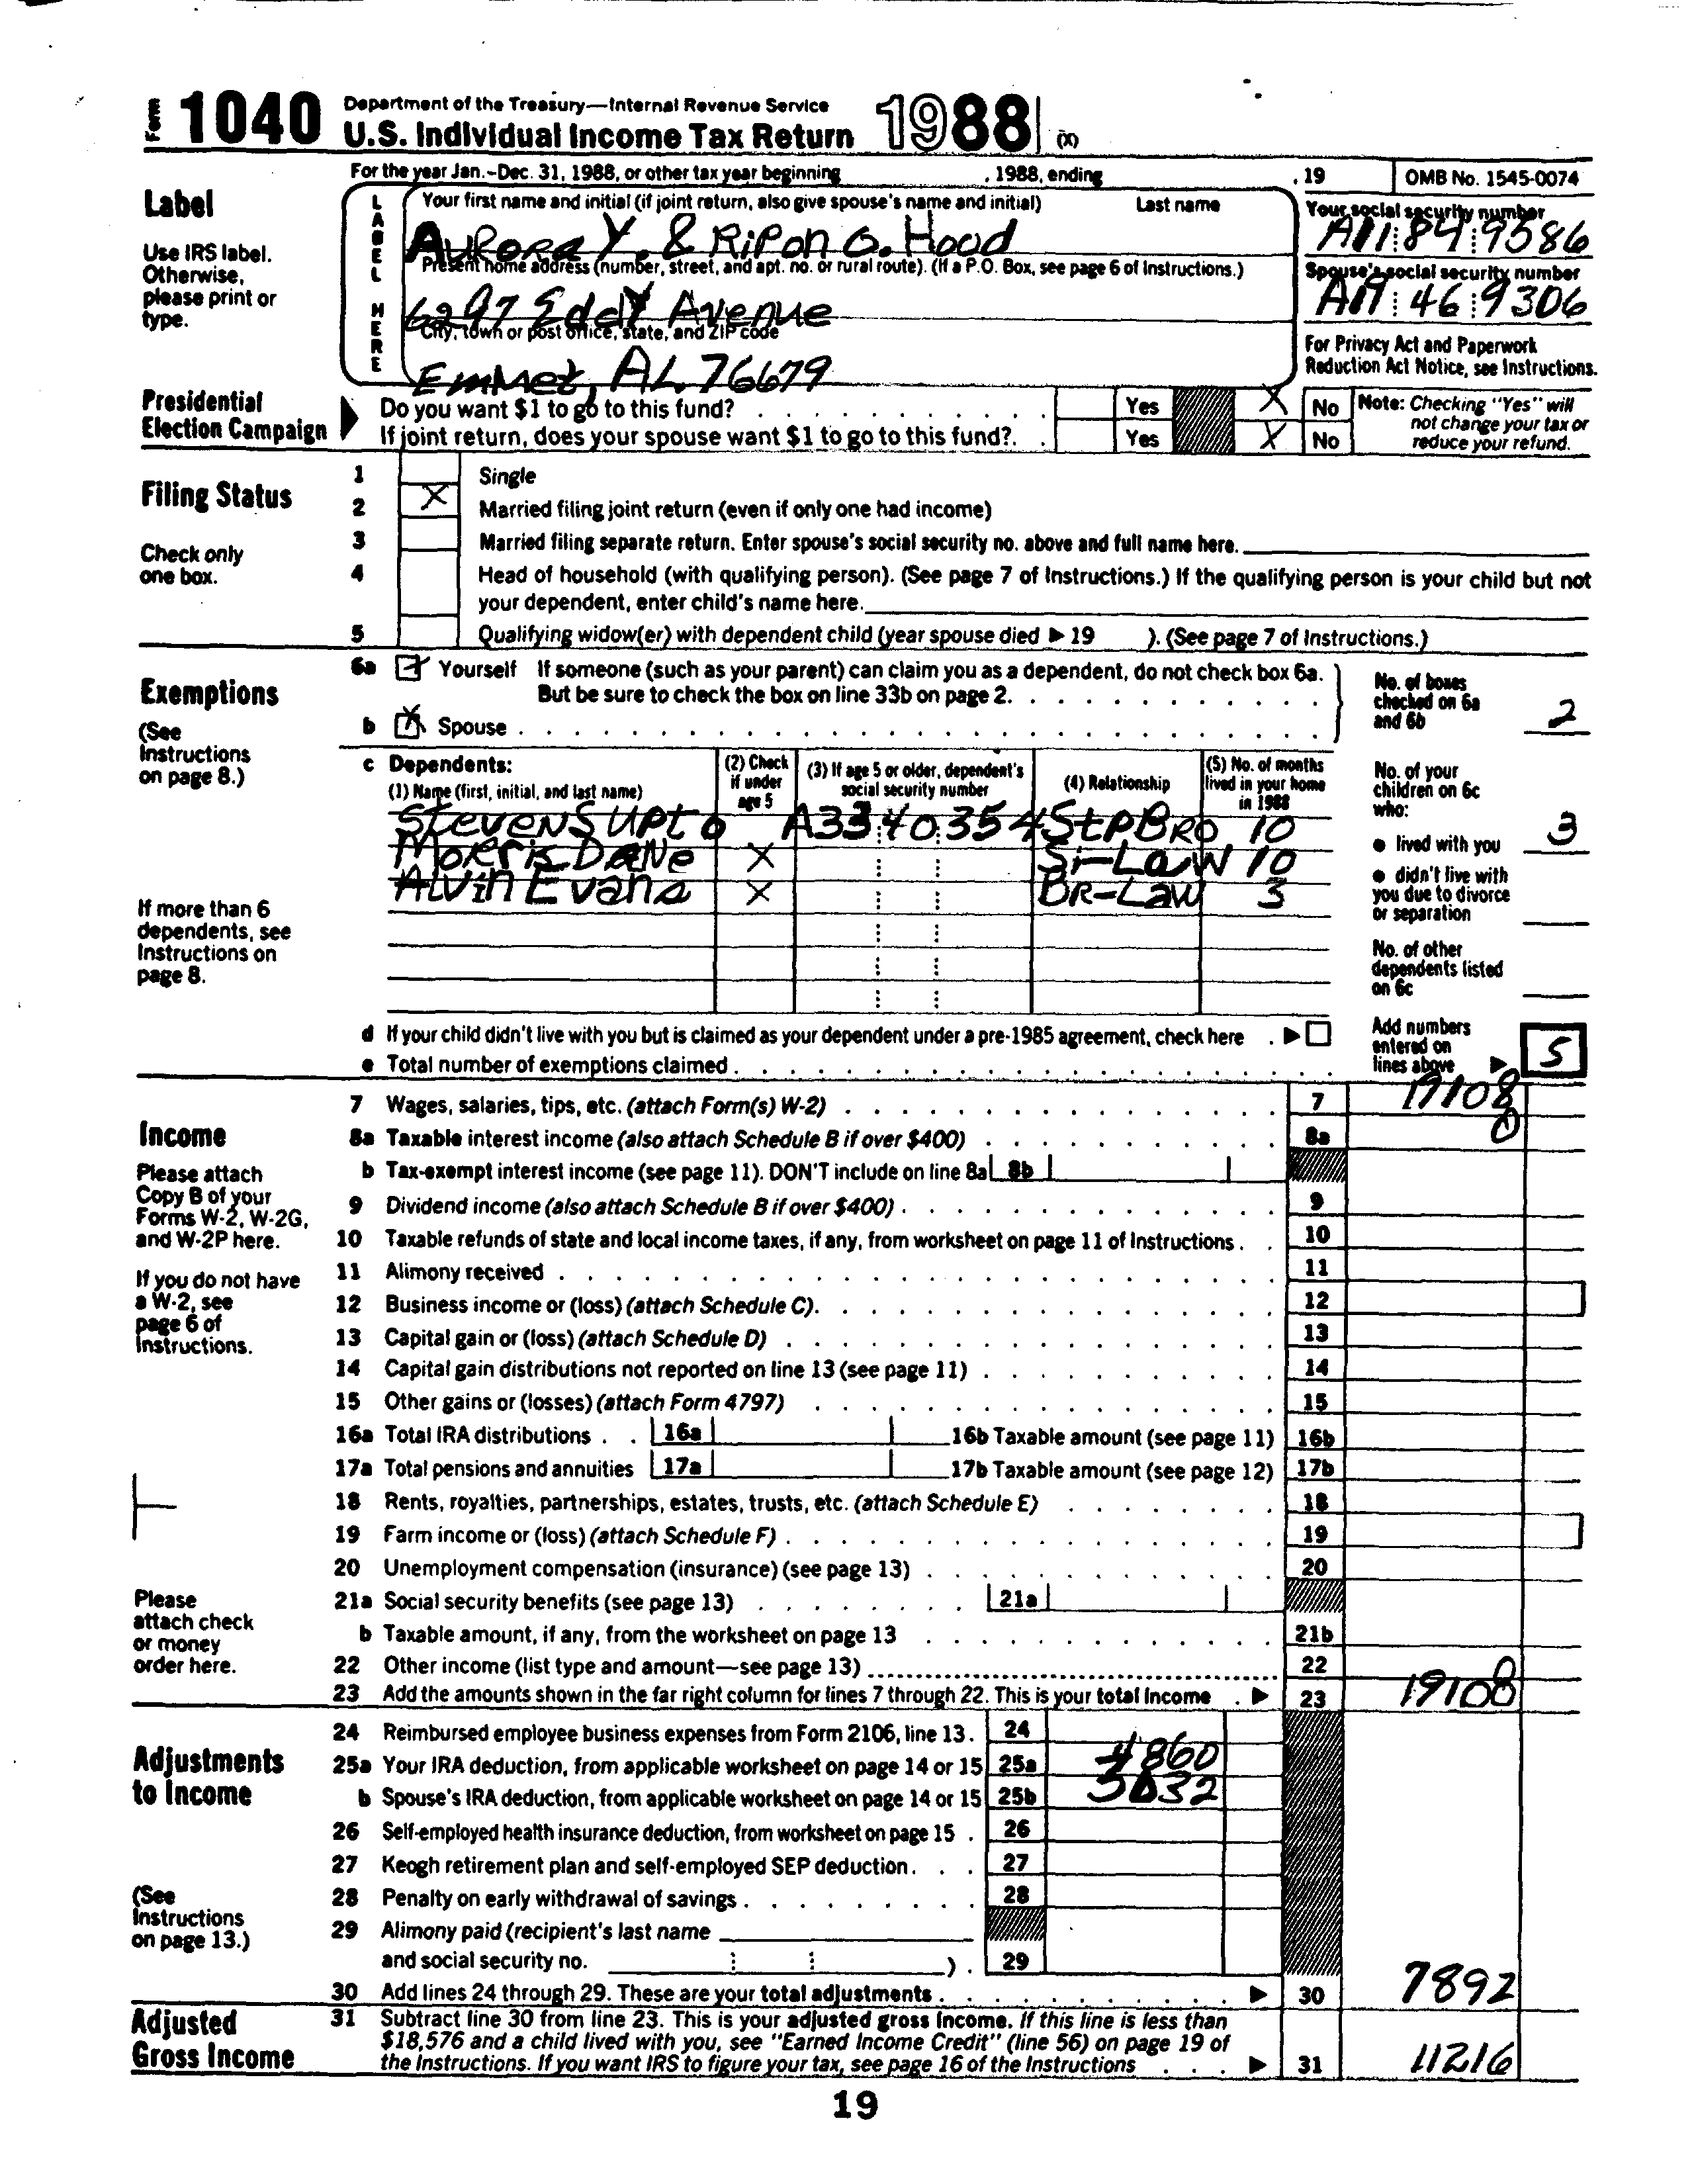 Form 1040 Department of the Treasury—Internal Revenue Service
U.S. Individual Income Tax Return 1988 (X)
For the year Jan.–Dec. 31, 1988, or other tax year beginning , 1988, ending , 19 OMB No. 1545-0074
Label
Use IRS label. Otherwise, please print or type.
LABEL HERE
Your first name and initial (if joint return, also give spouse's name and initial) Last name
Aurora Y. & Ripon G. Hood
Your social security number
A11:84:9586
Present home address (number, street, and apt. no. or rural route). (If a P.O. Box, see page 6 of Instructions.)
6297 Eddy Avenue
Spouse's social security number
A11:46:9306
City, town or post office, state, and ZIP code
Emmet, AL 76679
For Privacy Act and Paperwork Reduction Act Notice, see Instructions.
Presidential Election Campaign
Do you want $1 to go to this fund? Yes X No
If joint return, does your spouse want $1 to go to this fund?. Yes X No
Note: Checking "Yes" will not change your tax or reduce your refund.
Filing Status
Check only one box.
1 Single
2 X Married filing joint return (even if only one had income)
3 Married filing separate return. Enter spouse's social security no. above and full name here.
4 Head of household (with qualifying person). (See page 7 of Instructions.) If the qualifying person is your child but not
your dependent, enter child's name here.
5 Qualifying widow(er) with dependent child (year spouse died ▶ 19 ). (See page 7 of Instructions.)
Exemptions
(See Instructions on page 8.)
6a X Yourself If someone (such as your parent) can claim you as a dependent, do not check box 6a.
But be sure to check the box on line 33b on page 2.
b X Spouse
No. of boxes checked on 6a and 6b 2
c Dependents:
(1) Name (first, initial, and last name) (2) Check if under age 5 (3) If age 5 or older, dependent's social security number (4) Relationship (5) No. of months lived in your home in 1988
Steven S Upto A33:40:354 StpBro 10
Morris Dane X Si-Law 10
Alvin Evans X Br-Law 3
If more than 6 dependents, see Instructions on page 8.
No. of your children on 6c who:
● lived with you 3
● didn't live with you due to divorce or separation
No. of other dependents listed on 6c
d If your child didn't live with you but is claimed as your dependent under a pre-1985 agreement, check here ▶
e Total number of exemptions claimed
Add numbers entered on lines above ▶ 5
Income
Please attach Copy B of your Forms W-2, W-2G, and W-2P here.
If you do not have a W-2, see page 6 of Instructions.
Please attach check or money order here.
7 Wages, salaries, tips, etc. (attach Form(s) W-2) 7 19108
8a Taxable interest income (also attach Schedule B if over $400) 8a 0
b Tax-exempt interest income (see page 11). DON'T include on line 8a 8b
9 Dividend income (also attach Schedule B if over $400) 9
10 Taxable refunds of state and local income taxes, if any, from worksheet on page 11 of Instructions 10
11 Alimony received 11
12 Business income or (loss) (attach Schedule C). 12
13 Capital gain or (loss) (attach Schedule D) 13
14 Capital gain distributions not reported on line 13 (see page 11) 14
15 Other gains or (losses) (attach Form 4797) 15
16a Total IRA distributions 16a 16b Taxable amount (see page 11) 16b
17a Total pensions and annuities 17a 17b Taxable amount (see page 12) 17b
18 Rents, royalties, partnerships, estates, trusts, etc. (attach Schedule E) 18
19 Farm income or (loss) (attach Schedule F) 19
20 Unemployment compensation (insurance) (see page 13) 20
21a Social security benefits (see page 13) 21a
b Taxable amount, if any, from the worksheet on page 13 21b
22 Other income (list type and amount—see page 13) 22
23 Add the amounts shown in the far right column for lines 7 through 22. This is your total income ▶ 23 19108
Adjustments to Income
(See Instructions on page 13.)
24 Reimbursed employee business expenses from Form 2106, line 13. 24
25a Your IRA deduction, from applicable worksheet on page 14 or 15 25a 4860
b Spouse's IRA deduction, from applicable worksheet on page 14 or 15 25b 3032
26 Self-employed health insurance deduction, from worksheet on page 15 26
27 Keogh retirement plan and self-employed SEP deduction 27
28 Penalty on early withdrawal of savings 28
29 Alimony paid (recipient's last name
and social security no. ) 29
30 Add lines 24 through 29. These are your total adjustments ▶ 30 7892
Adjusted Gross Income
31 Subtract line 30 from line 23. This is your adjusted gross income. If this line is less than
$18,576 and a child lived with you, see "Earned Income Credit" (line 56) on page 19 of
the Instructions. If you want IRS to figure your tax, see page 16 of the Instructions ▶ 31 11216
19